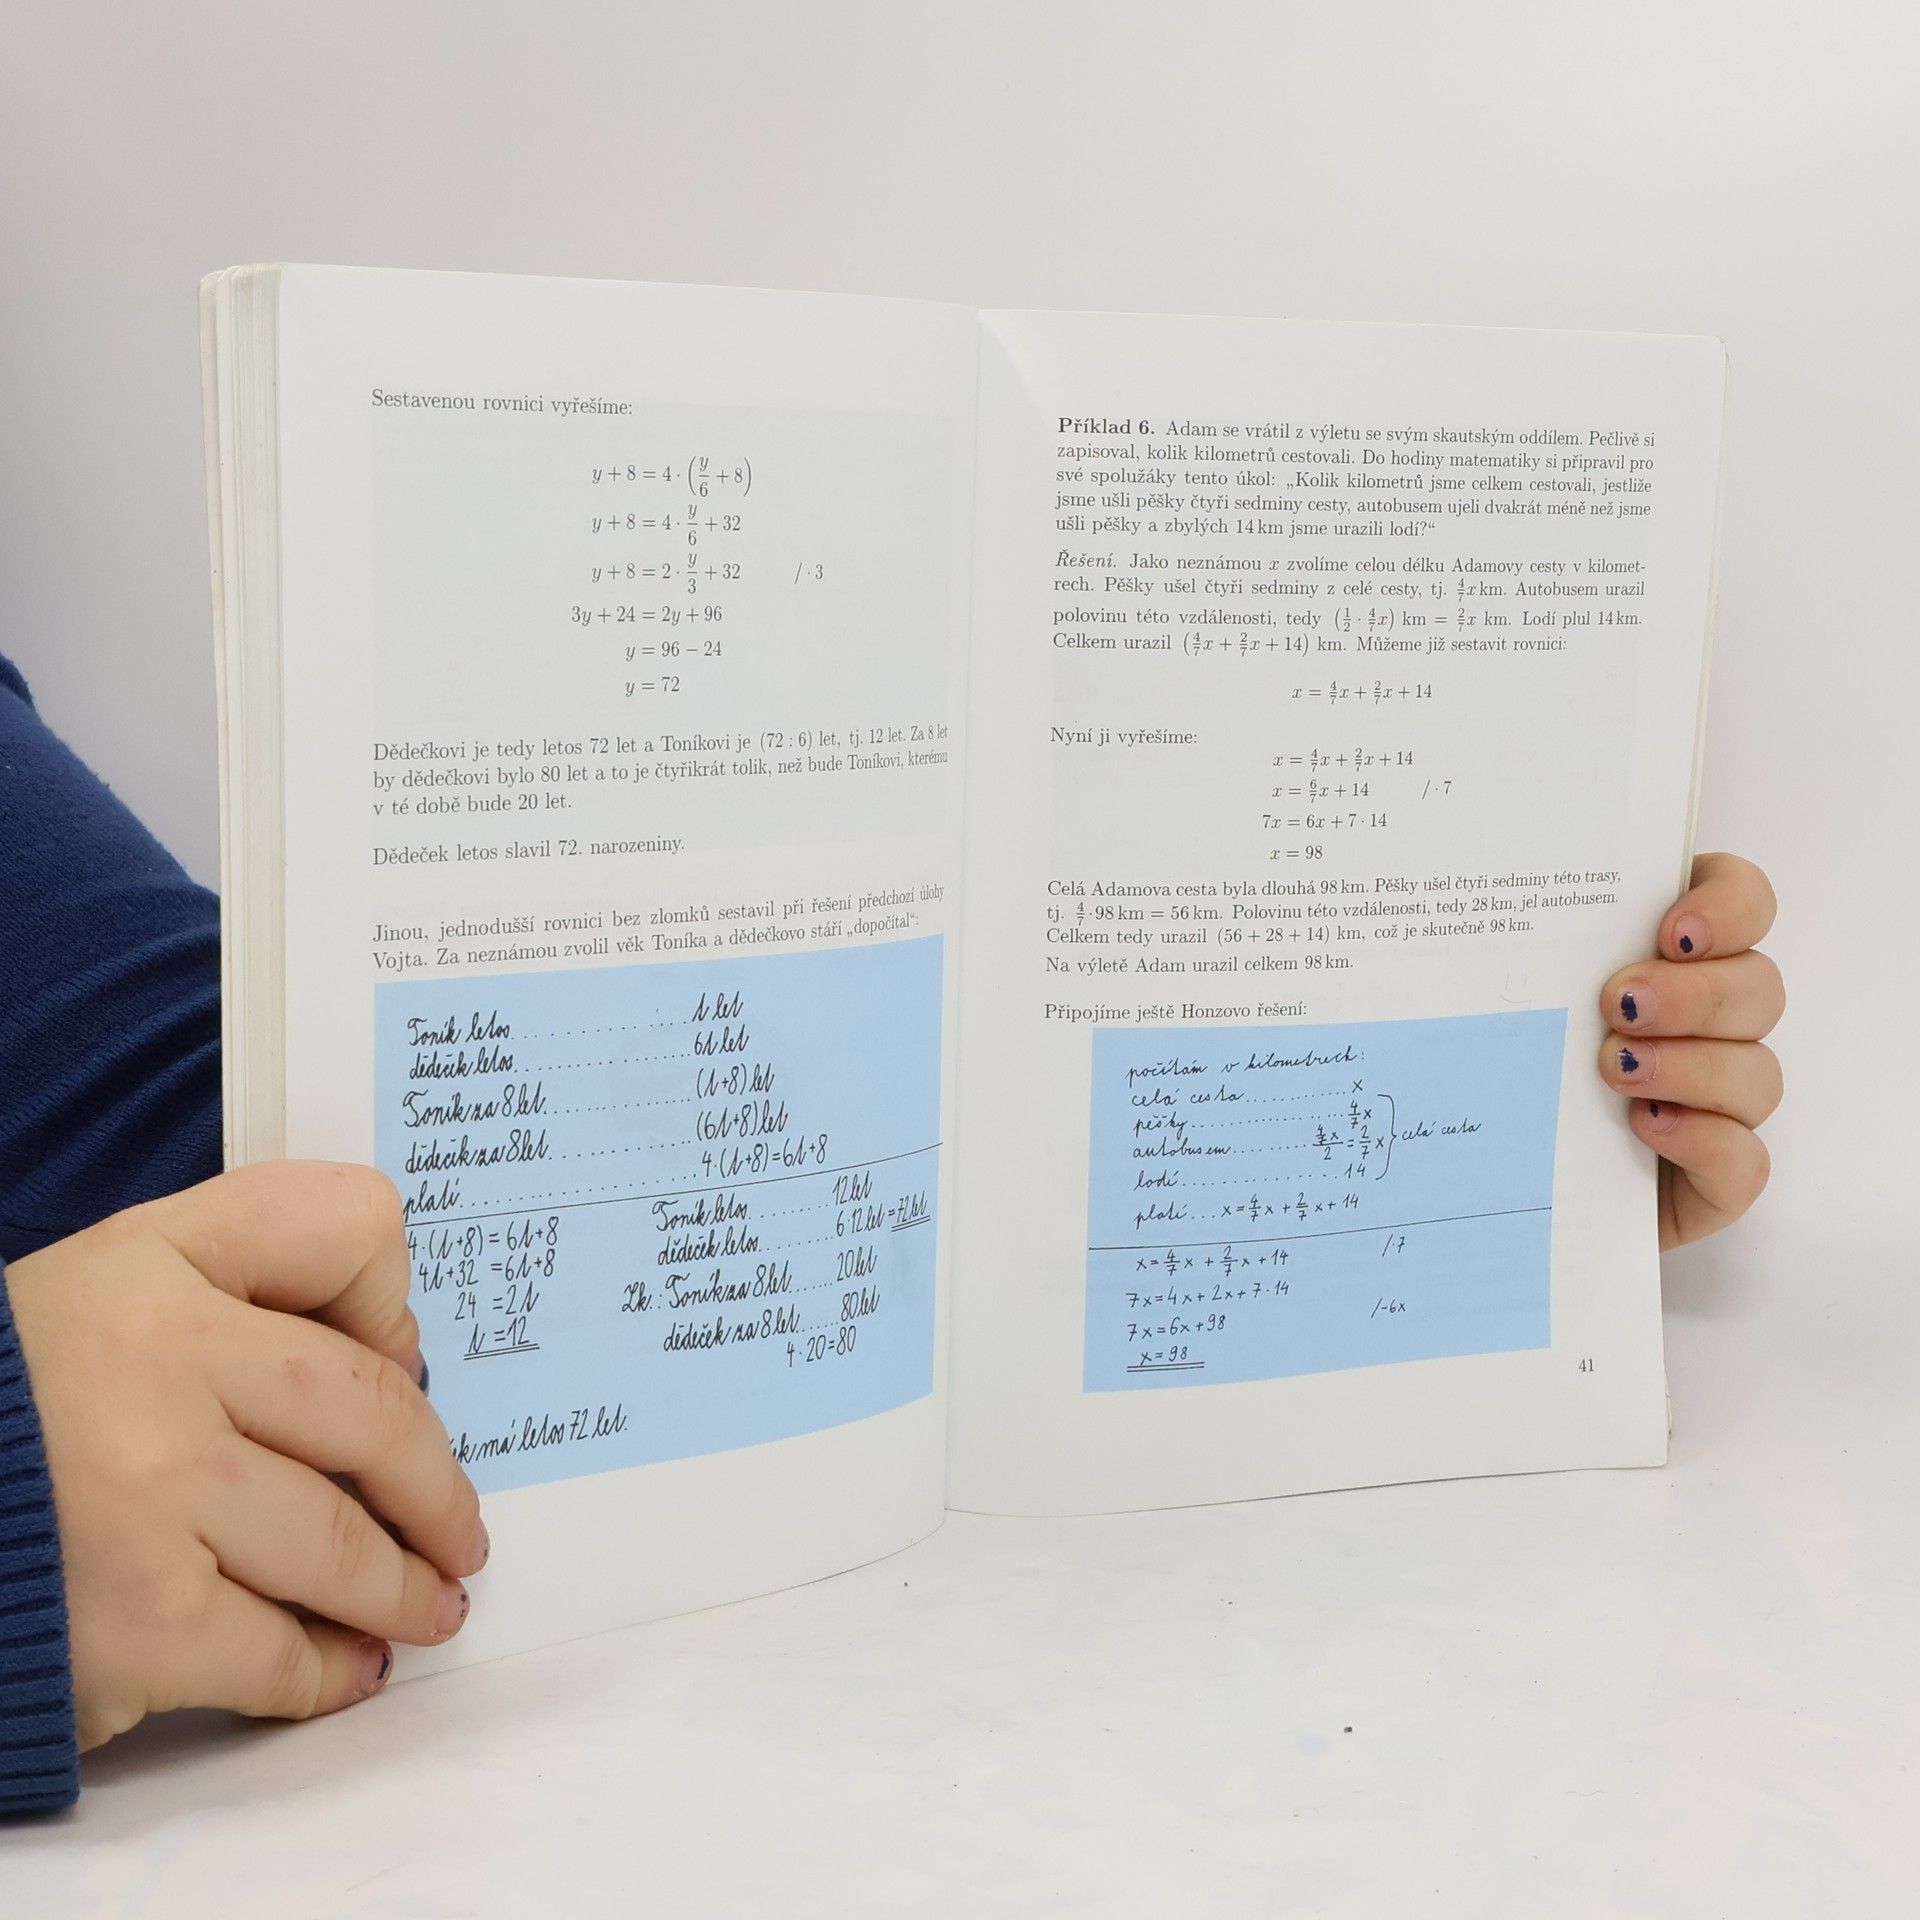 Sestavenou rovnici vyřešíme:
y + 8 = 4 · (y/6 + 8)
y + 8 = 4 · y/6 + 32
y + 8 = 2 · y/3 + 32 / · 3
3y + 24 = 2y + 96
y = 96 − 24
y = 72
Dědečkovi je tedy letos 72 let a Toníkovi je (72 : 6) let, tj. 12 let. Za 8 let
by dědečkovi bylo 80 let a to je čtyřikrát tolik, než bude Toníkovi, kterému
v té době bude 20 let.
Dědeček letos slavil 72. narozeniny.
Jinou, jednodušší rovnici bez zlomků sestavil při řešení předchozí úlohy
Vojta. Za neznámou zvolil věk Toníka a dědečkovo stáří „dopočítal“:
Toník letos . . . . . . . . . . . . . . t let
dědeček letos . . . . . . . . . . . . . . 6t let
Toník za 8 let . . . . . . . . . . . . . . (t+8) let
dědeček za 8 let . . . . . . . . . . . . . . (6t+8) let
platí . . . . . . . . . . . . . . 4·(t+8)=6t+8
4·(t+8) = 6t+8
4t+32 = 6t+8
24 = 2t
t = 12
Toník letos . . . . . . . . 12 let
dědeček letos . . . . . . . . 6·12 let = 72 let
Zk.: Toník za 8 let . . . . . . 20 let
dědeček za 8 let . . . . . . 80 let
4·20=80
má letos 72 let.
Příklad 6. Adam se vrátil z výletu se svým skautským oddílem. Pečlivě si
zapisoval, kolik kilometrů cestovali. Do hodiny matematiky si připravil pro
své spolužáky tento úkol: „Kolik kilometrů jsme celkem cestovali, jestliže
jsme ušli pěšky čtyři sedminy cesty, autobusem ujeli dvakrát méně než jsme
ušli pěšky a zbylých 14 km jsme urazili lodí?“
Řešení. Jako neznámou x zvolíme celou délku Adamovy cesty v kilomet-
rech. Pěšky ušel čtyři sedminy z celé cesty, tj. 4/7x km. Autobusem urazil
polovinu této vzdálenosti, tedy (1/2 · 4/7x) km = 2/7x km. Lodí plul 14 km.
Celkem urazil (4/7x + 2/7x + 14) km. Můžeme již sestavit rovnici:
x = 4/7x + 2/7x + 14
Nyní ji vyřešíme:
x = 4/7x + 2/7x + 14
x = 6/7x + 14 / · 7
7x = 6x + 7 · 14
x = 98
Celá Adamova cesta byla dlouhá 98 km. Pěšky ušel čtyři sedminy této trasy,
tj. 4/7 · 98 km = 56 km. Polovinu této vzdálenosti, tedy 28 km, jel autobusem.
Celkem tedy urazil (56 + 28 + 14) km, což je skutečně 98 km.
Na výletě Adam urazil celkem 98 km.
Připojíme ještě Honzovo řešení:
počítám v kilometrech:
celá cesta . . . . . . . . . . . . x
pěšky . . . . . . . . . . . . . . . 4/7 x
autobusem . . . . . . . . 4/7x/2 = 2/7 x } celá cesta
lodí . . . . . . . . . . . . . . . 14
platí . . . x = 4/7 x + 2/7 x + 14
x = 4/7 x + 2/7 x + 14 /·7
7x = 4x + 2x + 7·14
7x = 6x + 98 /-6x
x = 98
41